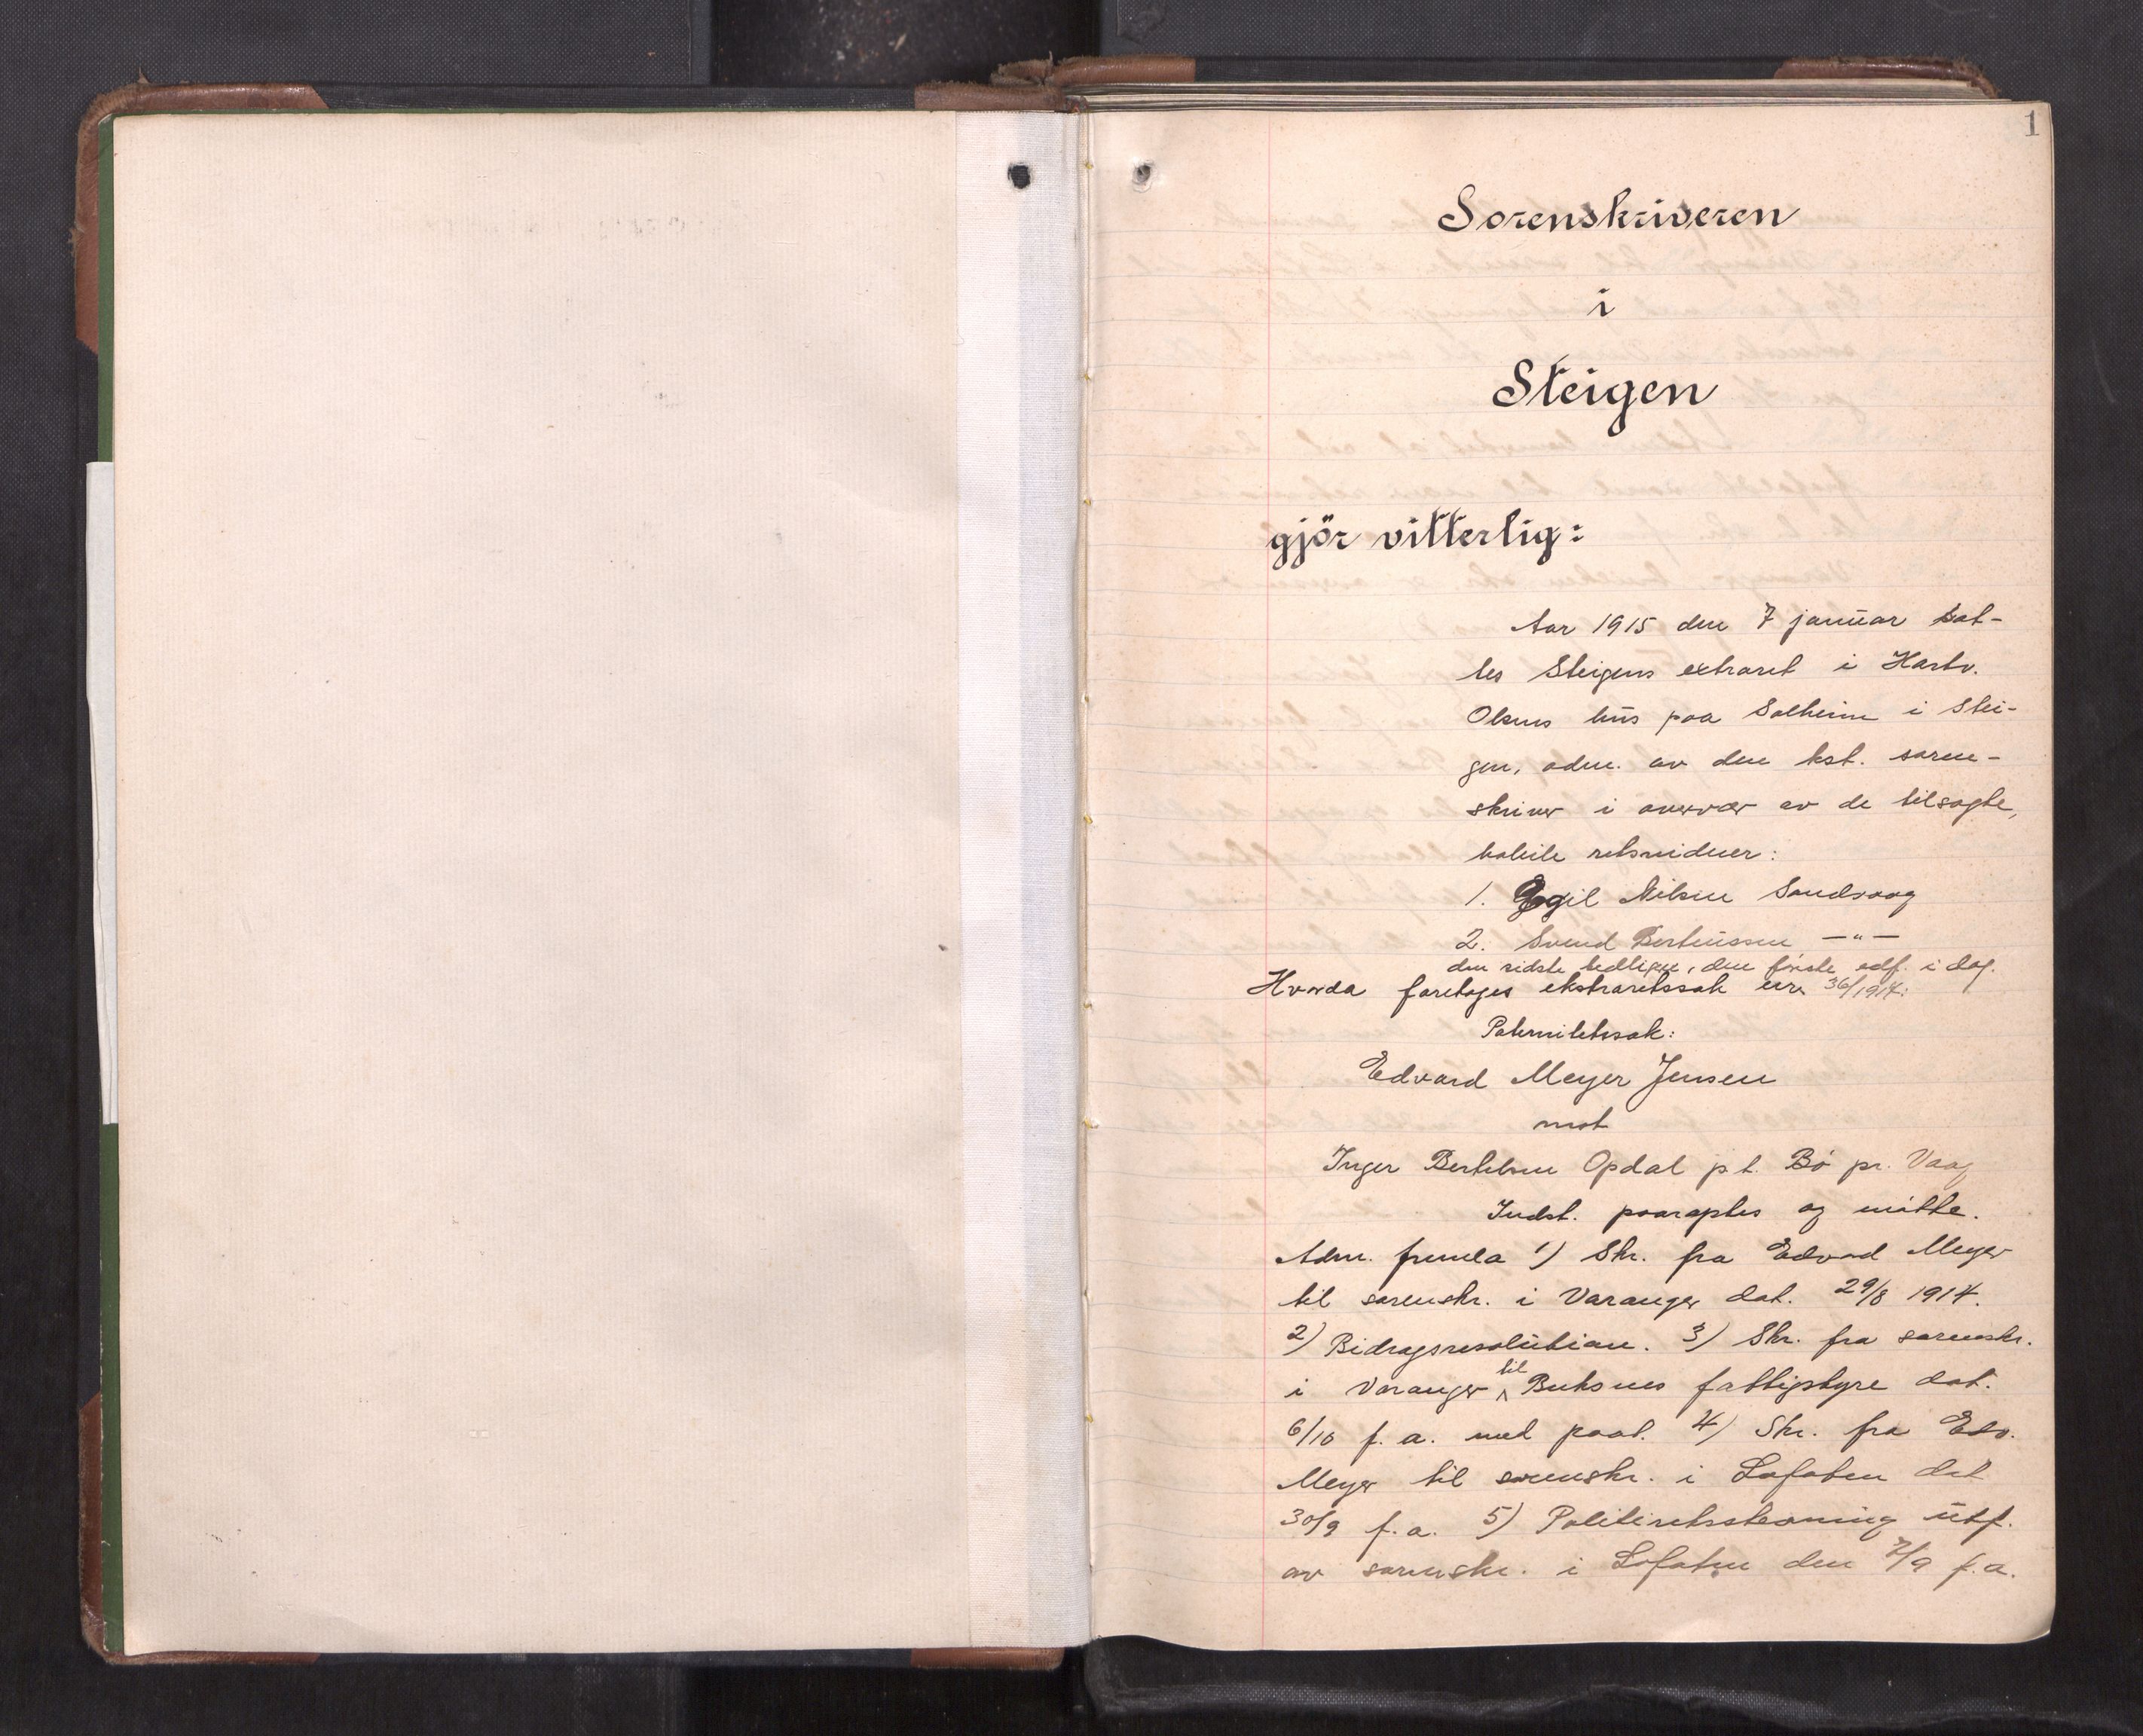 1
Sorenskriveren
i
Steigen
gjör vitterlig:
Aar 1915 den 7 januar sat-
tes Steigens extraret i Hartv.
Olsens hus paa Solheim i Stei-
gen, adm. av den kst. soren-
skriver i overvær av de tilsagte,
habile retsvidner:
1. Egil Nilsen Sandvaag
2. Svend Berteussen —"—
den sidste edligen, den første edf. i dag.
Hvorda foretoges ekstraretssak nr. 36/1914:
Paternitetssak:
Edvard Meyer Jensen
mot
Inger Bertelsen Opdal p t. Bö pr. Vaag
Indst. paaroptes og mötte.
Adm. fremla 1) Skr. fra Edvard Meyer
til sorenskr. i Varanger dat. 29/8 1914.
2) Bidragsresolution. 3) Skr. fra sorenskr.
i Varanger til Buksnes fattigstyre dat.
6/10 f. a. med paat. 4) Skr. fra Edv.
Meyer til sorenskr. i Lofoten dat
30/9 f. a. 5) Politiretsstevning utf.
av sorenskr. i Lofoten den 7/9 f. a.